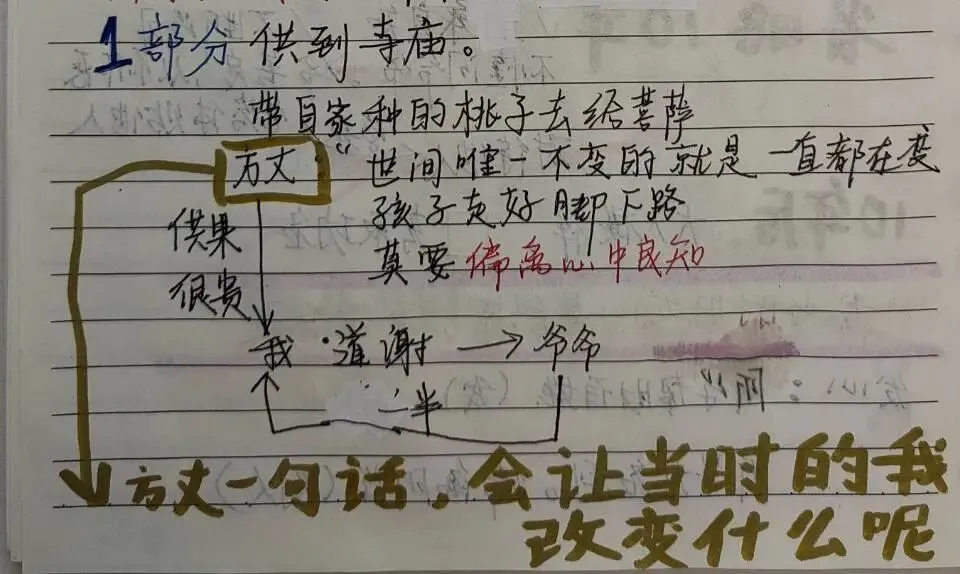 1部分供到寺庙。
带自家种的桃子去给菩萨
方丈：“世间唯一不变的就是一直都在变
孩子走好脚下路
供果
莫要偏离心中良知
很贵
我道谢→爷爷
一半
方丈一句话，会让当时的我
改变什么呢